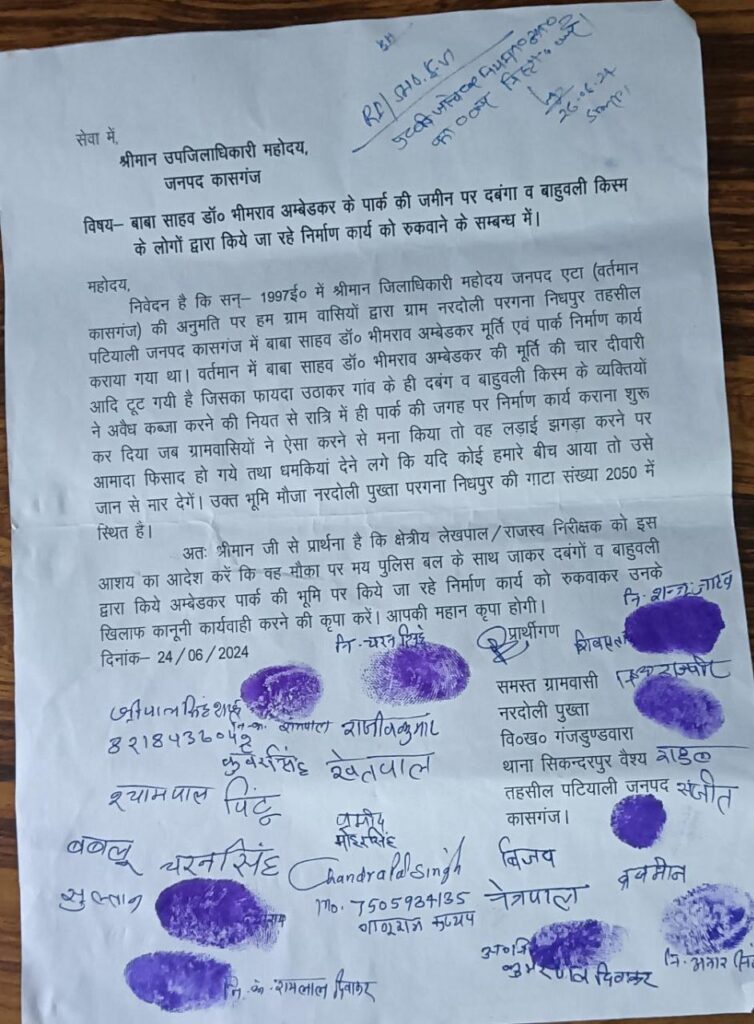 सेवा में,
श्रीमान उपजिलाधिकारी महोदय,
जनपद कासगंज
विषय– बाबा साहव डॉ० भीमराव अम्बेडकर के पार्क की जमीन पर दबंगा व बाहुवली किस्म
के लोगों द्वारा किये जा रहे निर्माण कार्य को रुकवाने के सम्बन्ध में।
महोदय,
निवेदन है कि सन्– 1997ई० में श्रीमान जिलाधिकारी महोदय जनपद एटा (वर्तमान
कासगंज) की अनुमति पर हम ग्राम वासियों द्वारा ग्राम नरदोली परगना निधपुर तहसील
पटियाली जनपद कासगंज में बाबा साहव डॉ० भीमराव अम्बेडकर मूर्ति एवं पार्क निर्माण कार्य
कराया गया था। वर्तमान में बाबा साहव डॉ० भीमराव अम्बेडकर की मूर्ति की चार दीवारी
आदि टूट गयी है जिसका फायदा उठाकर गांव के ही दबंग व बाहुवली किस्म के व्यक्तियों
ने अवैध कब्जा करने की नियत से रात्रि में ही पार्क की जगह पर निर्माण कार्य कराना शुरू
कर दिया जब ग्रामवासियों ने ऐसा करने से मना किया तो वह लड़ाई झगड़ा करने पर
आमादा फिसाद हो गये तथा धमकियां देने लगे कि यदि कोई हमारे बीच आया तो उसे
जान से मार देगें। उक्त भूमि मौजा नरदोली पुख्ता परगना निधपुर की गाटा संख्या 2050 में
स्थित है।
अतः श्रीमान जी से प्रार्थना है कि क्षेत्रीय लेखपाल/राजस्व निरीक्षक को इस
आशय का आदेश करें कि वह मौका पर मय पुलिस बल के साथ जाकर दबंगों व बाहुवली
द्वारा किये अम्बेडकर पार्क की भूमि पर किये जा रहे निर्माण कार्य को रुकवाकर उनके
खिलाफ कानूनी कार्यवाही करने की कृपा करें। आपकी महान कृपा होगी।
दिनांक– 24/06/2024
प्रार्थीगण
नि. चरन सिंह
समस्त ग्रामवासी
नरदोली पुख्ता
वि०ख० गंजडुण्डवारा
थाना सिकन्दरपुर वैश्य
तहसील पटियाली जनपद संजीत
कासगंज।
राजीव कुमार
कुवरसिंह खेतपाल
श्यामपाल पिंटू
बबलू चरन सिंह
सुल्तान
Chandrapal Singh
Mo. 7505934135
विजय
नेत्रपाल
नि. क. रामलाल दिवाकर